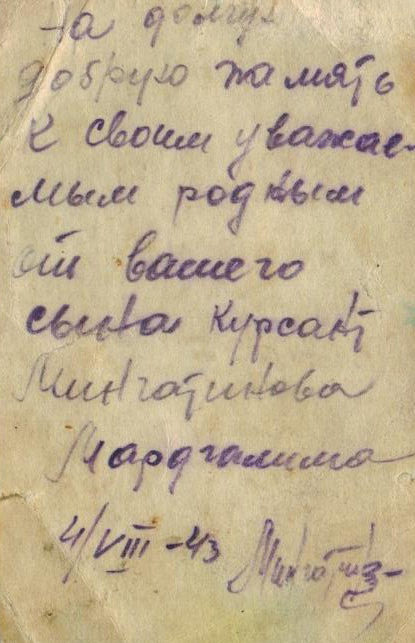 на долгую
добрую память
к своим уважае-
мым родным
от вашего
сына курсант
Мингатинова
Мардгалима
4/VIII-43